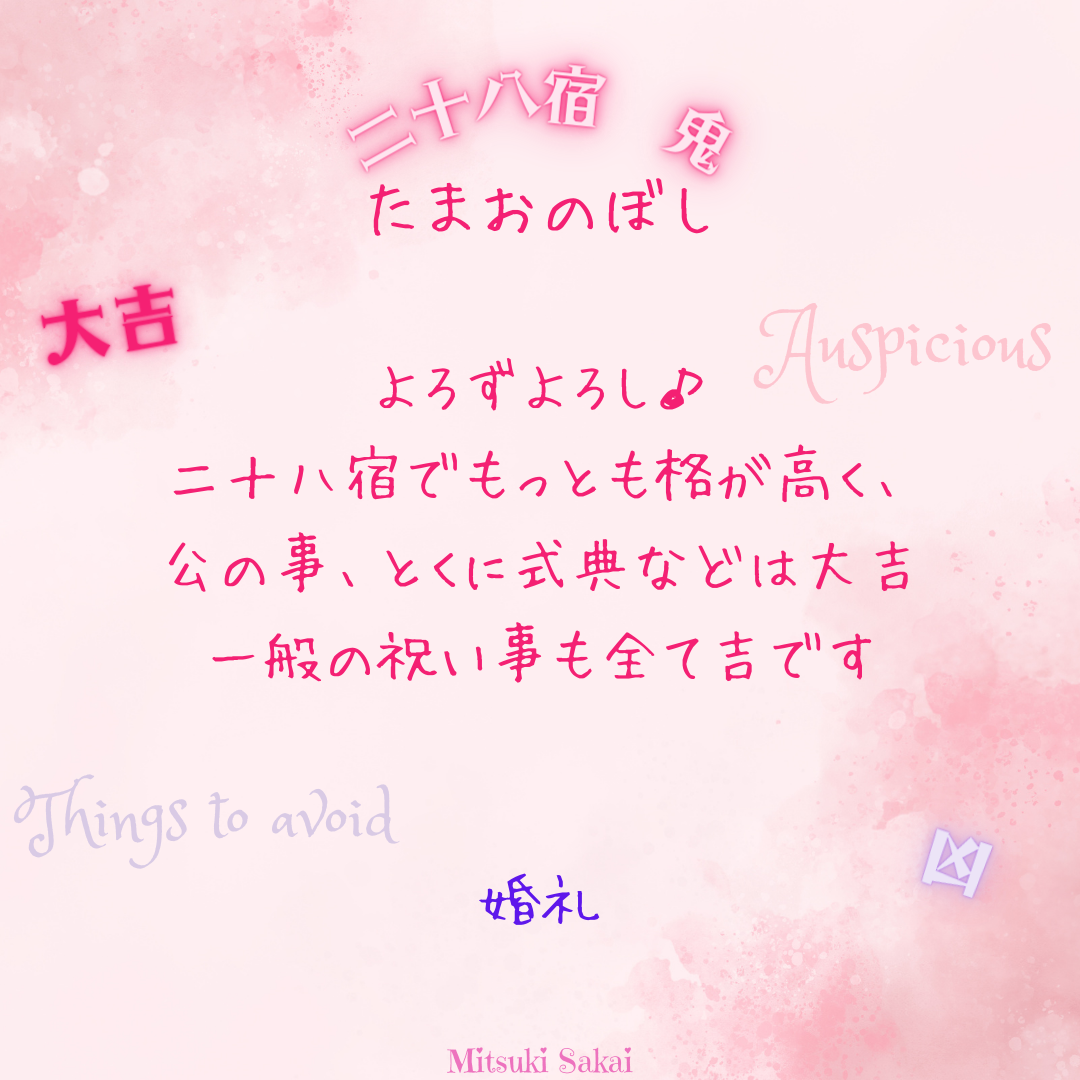 二十八宿 鬼
たまおのぼし
大吉
Auspicious
よろずよろし♪
二十八宿でもっとも格が高く、
公の事、とくに式典などは大吉
一般の祝い事も全て吉です
Things to avoid
凶
婚礼
Mitsuki Sakai